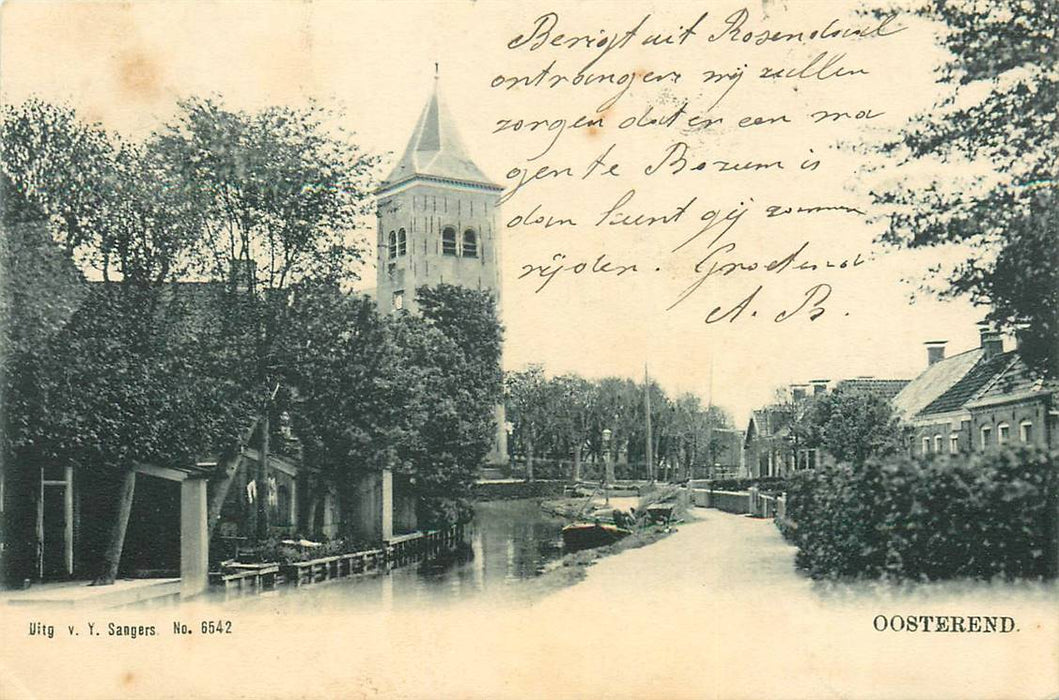 Berigt uit Rosendaal
ontvangen wij zullen
zorgen dat er een wa
gen te Bozum is
dan kunt gij zomm
rijden. Groetend
A. B.
Uitg v. Y. Sangers. No. 6542
OOSTEREND.